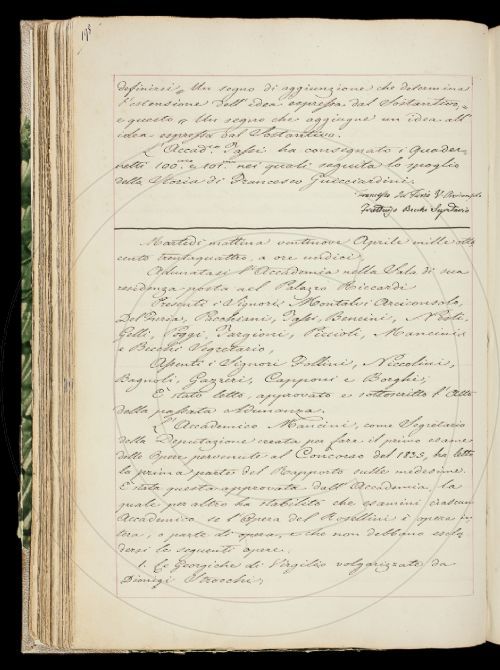 198
definirsi = Un segno di aggiunzione che determina
l'estensione dell'idea espressa dal Sostantivo, =
e questo = Un segno che aggiugne un idea all'
idea espressa dal Sostantivo.
L'Accad.co Tassi ha consegnato i Quader-
netti 100.mo e 101.mo nei quali seguita lo spoglio
della Storia di Francesco Guicciardini.
Francesco Del Furia V. Arciconsolo
Fruttuoso Becchi Segretario
Martedì mattina ventinove Aprile mille otto
cento trentaquattro, a ore undici,
Adunatasi l'Accademia nella Sala di sua
residenza posta nel Palazzo Riccardi
Presenti i Signori Montalvi Arciconsolo,
Del Furia, Tassi, Bencini, Nesti,
Gelli, Poggi, Targioni, Piccioli, Mancini
e Becchi Segretario,
Assenti i Signori Follini, Niccolini,
Bagnoli, Gazzeri, Capponi e Borghi;
È stato letto, approvato e sottoscritto l'Atto
della passata Adunanza.
L'Accademico Mancini, come Segretario
della Deputazione creata per fare il primo esame
delle Opere pervenute al Concorso del 1835, ha letto
la prima parte del Rapporto sulle medesime.
È stata questa approvata dall'Accademia, la
quale per altro ha stabilito che esamini ciascun
Accademico se l'Opera del Rosellini è opera in-
tera, o parte di opera, e che non debbano esclu
dersi le seguenti opere.
1. Le Georgiche di Virgilio volgarizzate da
Dionigi Strocchi;